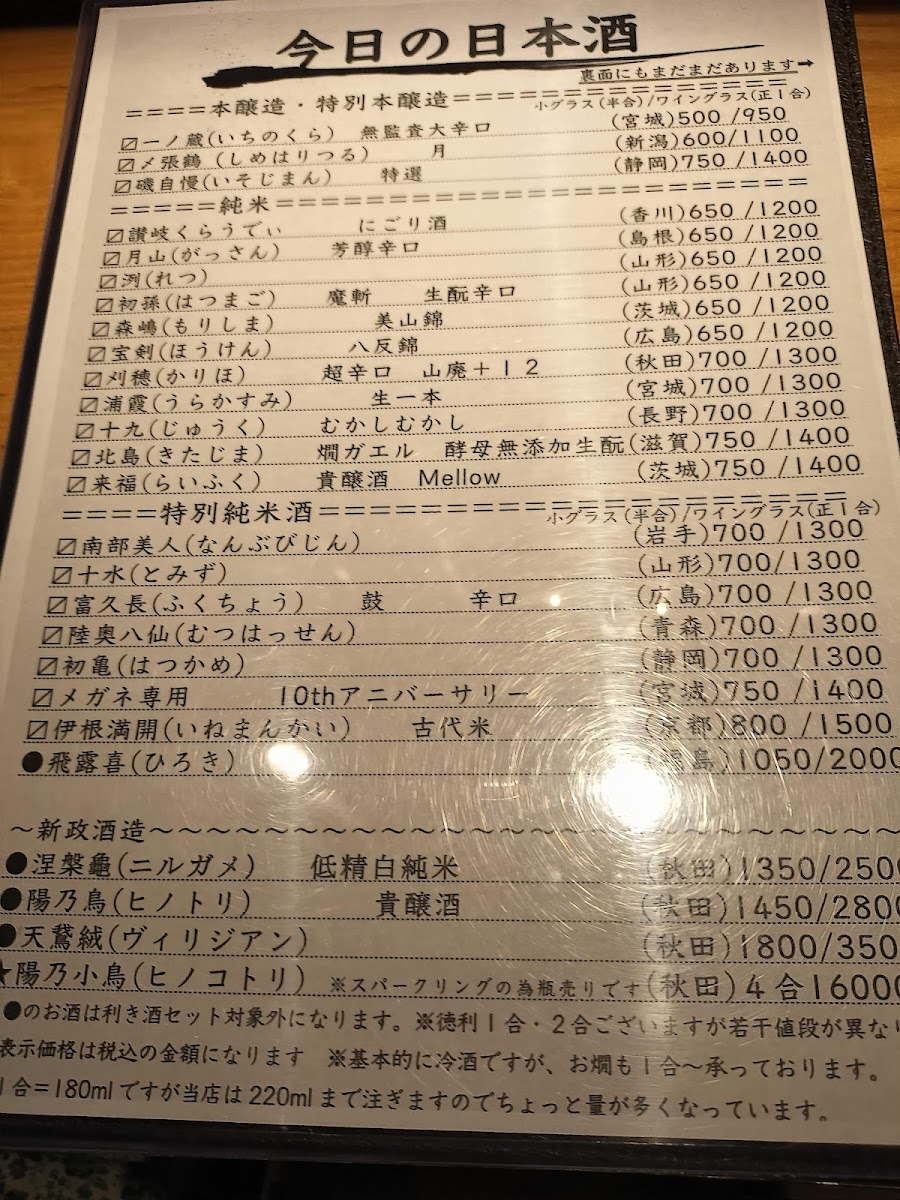 今日の日本酒
裏面にもまだまだあります➡
====本醸造・特別本醸造============== 小グラス(半合)/ワイングラス(正1合)
☑一ノ蔵(いちのくら) 無監査大辛口 (宮城)500/950
☑〆張鶴(しめはりつる) 月 (新潟)600/1100
☑磯自慢(いそじまん) 特選 (静岡)750/1400
=====純米==============================
☑讃岐くらうでぃ にごり酒 (香川)650/1200
☑月山(がっさん) 芳醇辛口 (島根)650/1200
☑洌(れつ) (山形)650/1200
☑初孫(はつまご) 魔斬 生酛辛口 (山形)650/1200
☑森嶋(もりしま) 美山錦 (茨城)650/1200
☑宝剣(ほうけん) 八反錦 (広島)650/1200
☑刈穂(かりほ) 超辛口 山廃+12 (秋田)700/1300
☑浦霞(うらかすみ) 生一本 (宮城)700/1300
☑十九(じゅうく) むかしむかし (長野)700/1300
☑北島(きたじま) 燗ガエル 酵母無添加生酛(滋賀)750/1400
☑来福(らいふく) 貴醸酒 Mellow (茨城)750/1400
====特別純米酒====================== 小グラス(半合)/ワイングラス(正1合)
☑南部美人(なんぶびじん) (岩手)700/1300
☑十水(とみず) (山形)700/1300
☑富久長(ふくちょう) 鼓 辛口 (広島)700/1300
☑陸奥八仙(むつはっせん) (青森)700/1300
☑初亀(はつかめ) (静岡)700/1300
☑メガネ専用 10thアニバーサリー (宮城)750/1400
☑伊根満開(いねまんかい) 古代米 (京都)800/1500
●飛露喜(ひろき) 島)1050/2000
~新政酒造~~~~~~~~~~~~~~~~~~~~~~~~
●涅槃龜(ニルガメ) 低精白純米 (秋田)1350/2500
●陽乃鳥(ヒノトリ) 貴醸酒 (秋田)1450/2800
●天鵞絨(ヴィリジアン) (秋田)1800/350
★陽乃小鳥(ヒノコトリ) ※スパークリングの為瓶売りです(秋田)4合16000
●のお酒は利き酒セット対象外になります。※徳利1合・2合ございますが若干値段が異なり
表示価格は税込の金額になります ※基本的に冷酒ですが、お燗も1合~承っております。
1合=180mlですが当店は220mlまで注ぎますのでちょっと量が多くなっています。